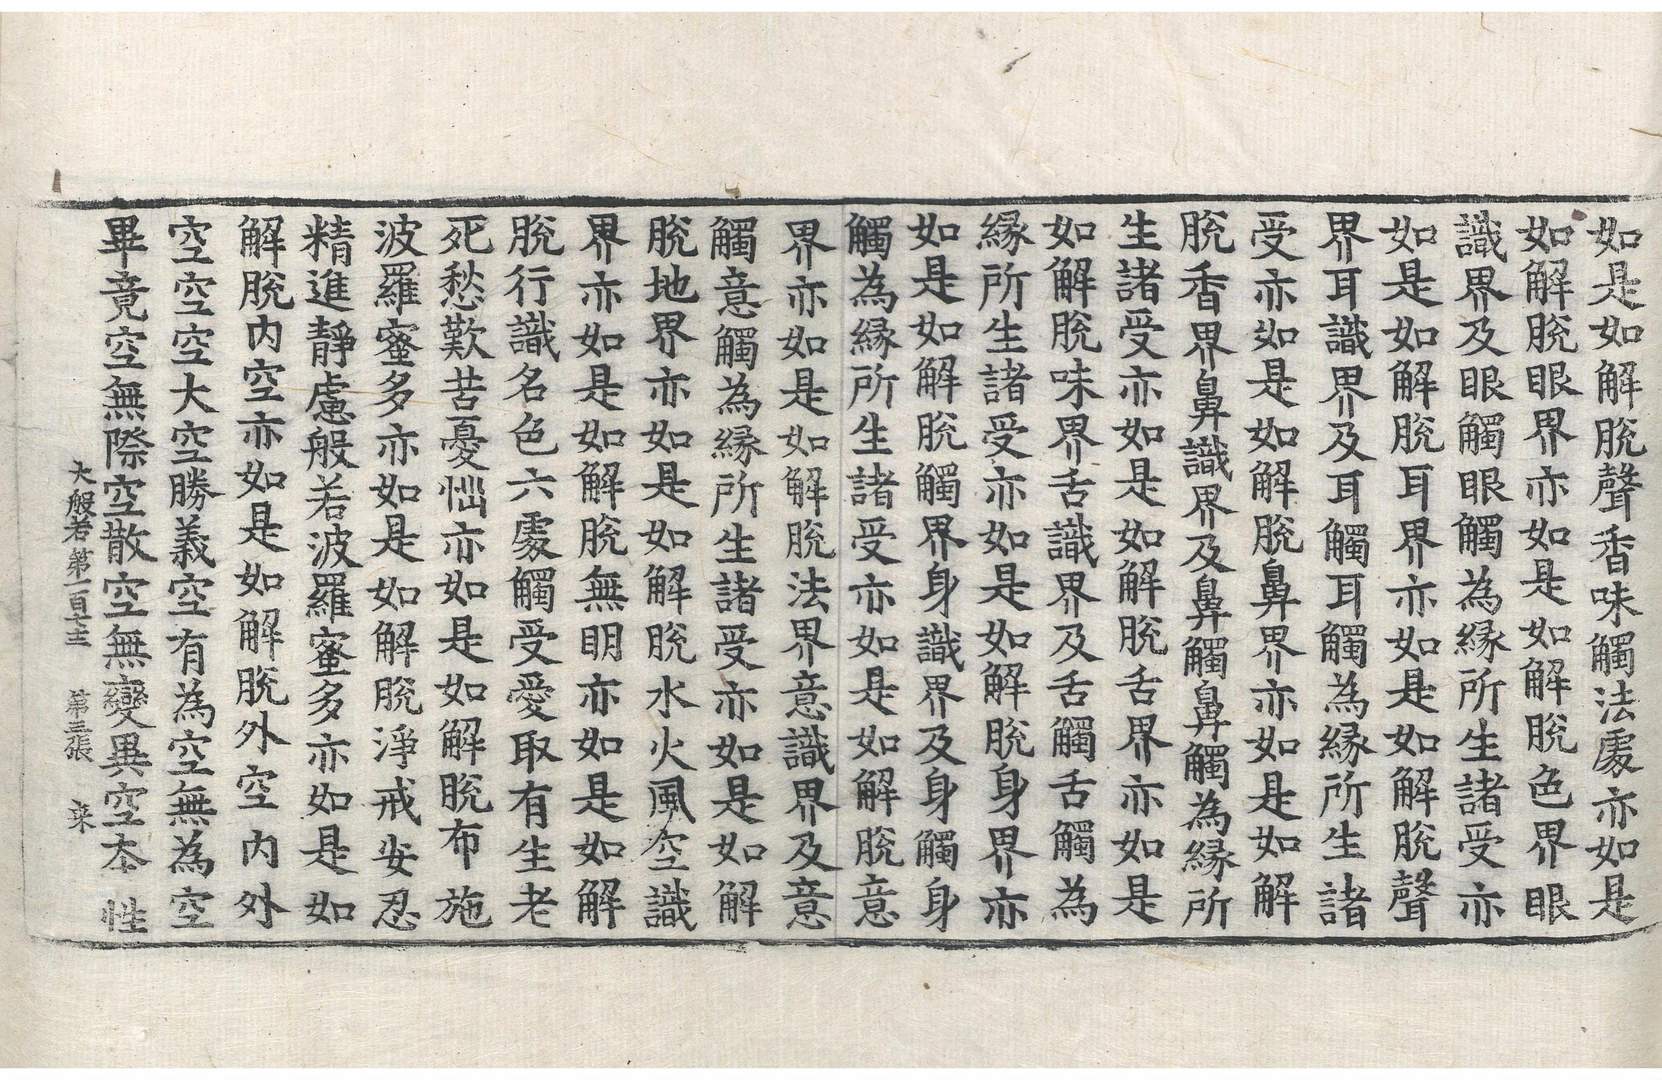 如是如解脫聲香味觸法處亦如是
如解脫眼界亦如是如解脫色界眼
識界及眼觸眼觸為緣所生諸受亦
如是如解脫耳界亦如是如解脫聲
界耳識界及耳觸耳觸為緣所生諸
受亦如是如解脫鼻界亦如是如解
脫香界鼻識界及鼻觸鼻觸為緣所
生諸受亦如是如解脫舌界亦如是
如解脫味界舌識界及舌觸舌觸為
緣所生諸受亦如是如解脫身界亦
如是如解脫觸界身識界及身觸身
觸為緣所生諸受亦如是如解脫意
界亦如是如解脫法界意識界及意
觸意觸為緣所生諸受亦如是如解
脫地界亦如是如解脫水火風空識
界亦如是如解脫無明亦如是如解
脫行識名色六處觸受愛取有生老
死愁歎苦憂惱亦如是如解脫布施
波羅蜜多亦如是如解脫淨戒安忍
精進靜慮般若波羅蜜多亦如是如
解脫內空亦如是如解脫外空內外
空空空大空勝義空有為空無為空
畢竟空無際空散空無變異空本性
大般若第一百七十三 第三張 来